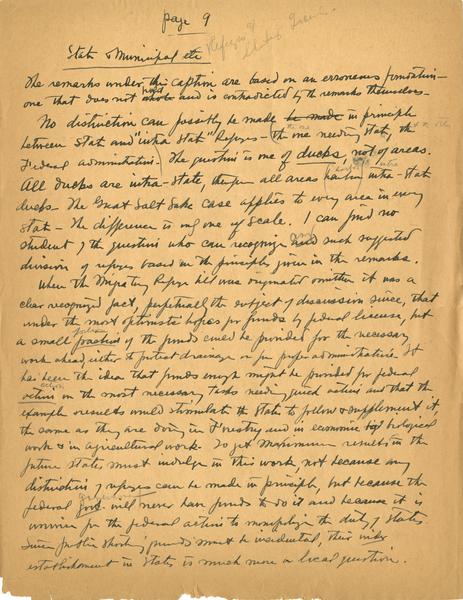 page 9
State & Municipal etc
Refuges & Shooting Grounds.
The remarks under this caption are based on an erroneous foundation—
one that does not hold and is contradicted by the remarks themselves.
No distinction can possibly be made in principle
between State and "intra State" Refuges— the one needing State, the
Federal administration. The question is one of ducks, not of areas.
All ducks are intra-State, therefore all areas intra-State
ducks— The Great Salt Lake case applies to every area in every
State— The difference is only one of scale. I can find no
student of the question who can recognize any such suggested
division of refuges based on the principles given in the remarks.
When the Migratory Refuge bill was originated it was a
clear recognized fact, perpetually the subject of discussion since, that
under the most optimistic hopes for funds by federal license, but
a small portion of the funds could be provided for the necessary
work ahead, either to protect drainage or for proper administration. It
has been the idea that funds enough might be provided for federal
action on the most necessary tasks needing quick action and that the
example & results would stimulate the State to follow & supplement it,
the same as they are doing in Forestry and in economic biological
work & in agricultural work. To get maximum results in the
future States must indulge in this work, not because any
distinction of refuges can be made in principle, but because the
federal government will never have funds to do it and because it is
unwise for the federal action to monopolize the duty of States
Since public shooting grounds must be incidental, their
establishment in States is much more a local question.